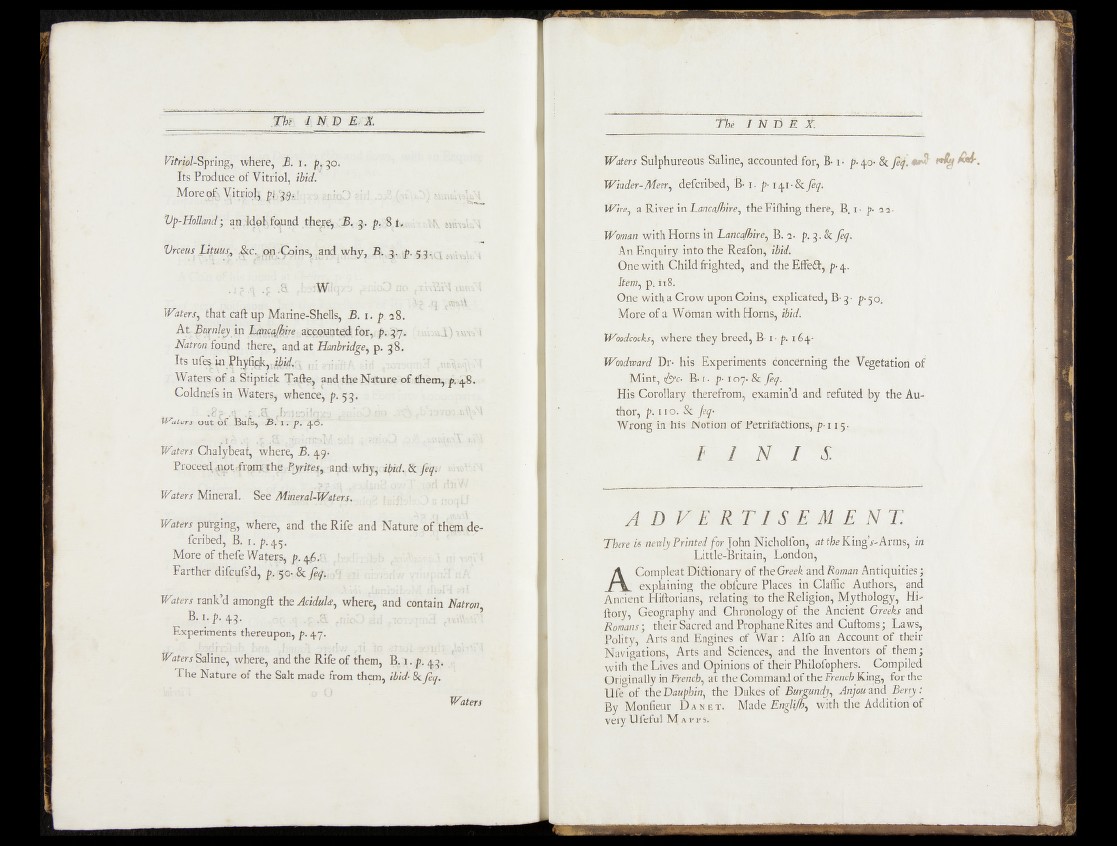 The INDEX.
Vitriol-Spring, where, B. 1. p. 30.
Its Produce of Vitriol, ibid.
More of Vitriol, p. 39.
Up-Holland; an Idol found there, B. 3. p. 81.
Urceus Lituus, &c. on Coins, and why, B. 3. p. 53.
W
Waters, that caſt up Marine-Shells, B. 1. p 28.
At Burnley in Lancaſhire accounted for, p. 37.
Natron found there, and at Hanbridge, p. 38.
Its uſes in Phyſick, ibid.
Waters of a Stiptick Taſte, and the Nature of them, p. 48.
Coldneſs in Waters, whence, p. 53.
Waters out of Baſs, B. 1. p. 46.
Waters Chalybeat, where, B. 49.
Proceed not from the Pyrites, and why, ibid. & ſeq.
Waters Mineral. See Mineral-Waters.
Waters purging, where, and the Riſe and Nature of them de-
ſcribed, B. 1. p. 45.
More of theſe Waters, p. 46.
Farther diſcuſs'd, p. 50. & ſeq.
Waters rank'd amongſt the Acidulæ, where, and contain Natron,
B. 1. p. 43.
Experiments thereupon, p. 47.
Waters Saline, where, and the Riſe of them, B. 1. p. 43.
The Nature of the Salt made from them, ibid. & ſeq.
Waters
The INDEX.
Waters Sulphureous Saline, accounted for, B. 1. p. 40. & ſeq. and
Winder-Merr, deſcribed, B. 1. p. 141. & ſeq.
Wire, a River in Lancaſhire, the Fiſhing there, B. 1. p. 22.
Woman with Horns in Lancaſhire, B. 2. p. 3. & ſeq.
An Enquiry into the Reaſon, ibid.
One with Child frighted, and the Effect, p. 4.
Item, p. 118.
One with a Crow upon Coins, explicated, B. 3. p. 50.
More of a Woman with Horns, ibid.
Woodcocks, where they breed, B. 1. p. 164.
Woodward Dr. his Experiments concerning the Vegetation of
Mint, &c. B. 1. p. 107. & ſeq.
His Corollary therefrom, examin'd and refuted by the Au-
thor, p. 110. & ſeq.
Wrong in his Notion of Petrifactions, p. 115.
FINIS.
ADVERTISEMENT.
There is newly Printed for John Nicholſon, at the King's-Arms, in
Little-Britain, London,
A Compleat Dictionary of the Greek and Roman Antiquities;
explaining the obſcure Places in Claſſic Authors, and
Ancient Hiſtorians, relating to the Religion, Mythology, Hi-
ſtory, Geography and Chronology of the Ancient Greeks and
Romans; their Sacred and Prophane Rites and Cuſtoms; Laws,
Polity, Arts and Engines of War: Alſo an Account of their
Navigations, Arts and Sciences, and the Inventors of them;
with the Lives and Opinions of their Philoſophers. Compiled
Originally in French, at the Command of the French King, for the
Uſe of the Dauphin, the Dukes of Burgundy, Anjou and Berry:
By Monſieur DANET. Made Engliſh, with the Addition of
very Uſeful MAPPS.